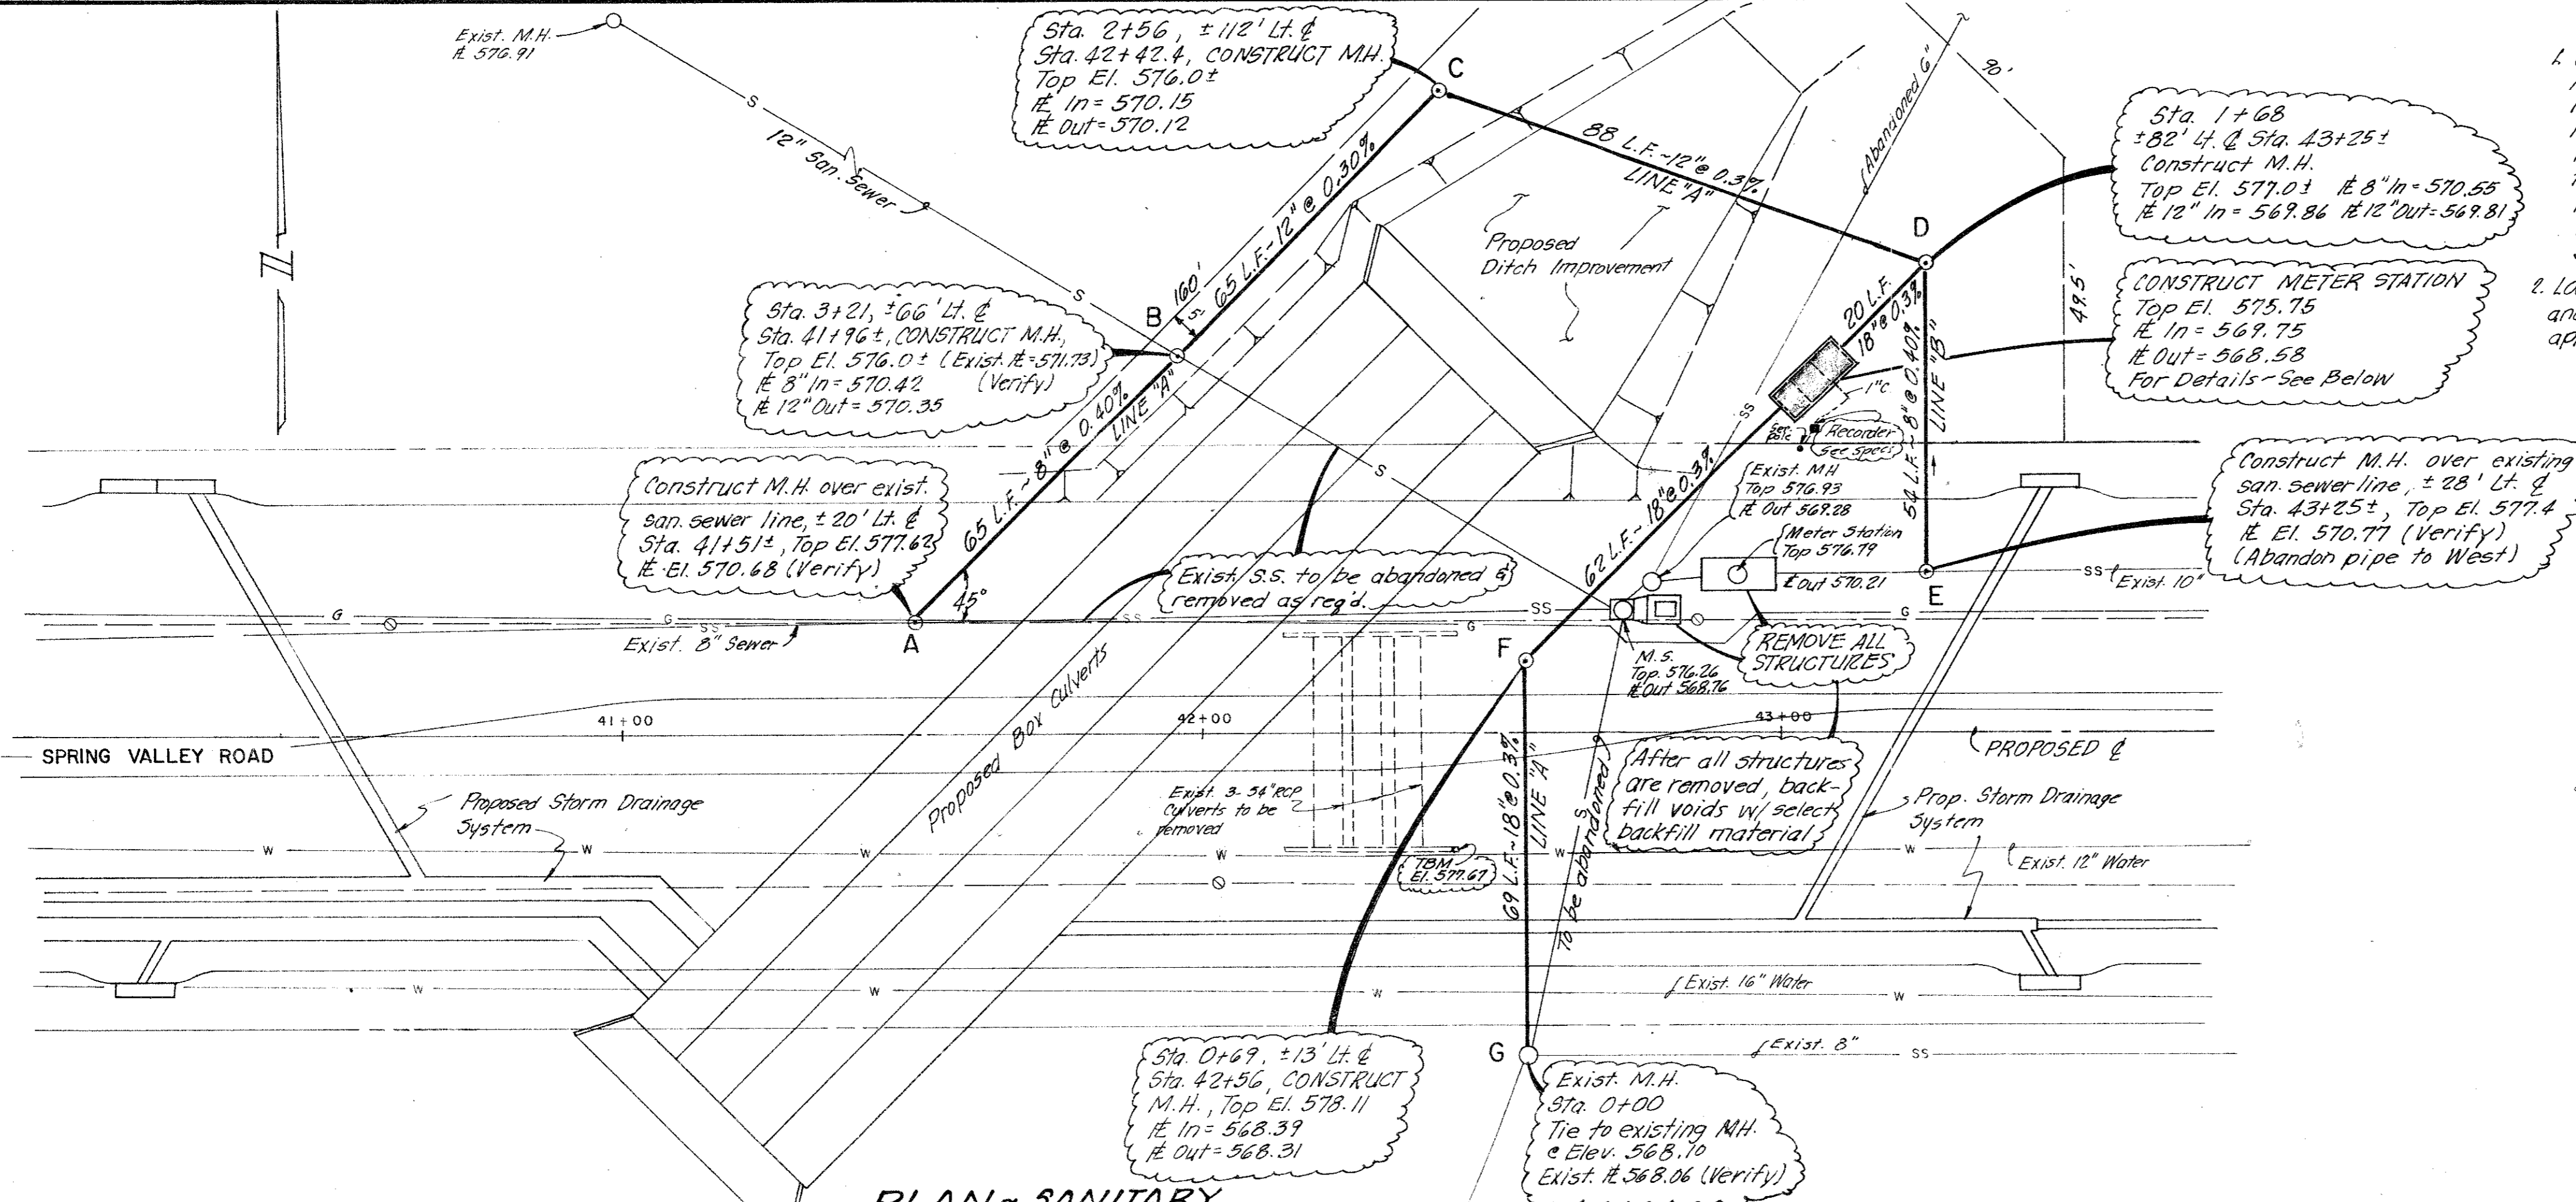 Exist. M.H.
℄ 576.91
S
12" San. Sewer
S
Sta. 2+56, ±112' Lt. ℄
Sta. 42+42.4, CONSTRUCT M.H.
Top El. 576.0±
℄ In = 570.15
℄ Out = 570.12
C
88 L.F. ~12"@ 0.3%
LINE "A"
Abandoned 6"
90'
49.5'
Sta. 1+68
±82' Lt. ℄ Sta. 43+25±
Construct M.H.
Top El. 577.0± ℄ 8" In = 570.55
℄ 12" In = 569.86 ℄ 12" Out = 569.81
D
CONSTRUCT METER STATION
Top El. 575.75
℄ In = 569.75
℄ Out = 568.58
For Details ~ See Below
2. LO
Proposed
Ditch Improvement
160'
5'
65 L.F. ~ 12" @ 0.30%
B
Sta. 3+21, ±66' Lt. ℄
Sta. 41+96±, CONSTRUCT M.H.,
Top El. 576.0± (Exist. ℄ = 571.73)
℄ 8" In = 570.42 (Verify)
℄ 12" Out = 570.35
65 L.F. ~ 8" @ 0.40%
LINE "A"
20 L.F.
18" @ 0.3%
54 L.F. ~ 8" @ 0.40%
LINE "B"
1"C
Ser.
pole
Recorder
See Specs
SS
S
Construct M.H. over exist.
san. sewer line, ±20' Lt. ℄
Sta. 41+51±, Top El. 577.62
℄ El. 570.68 (Verify)
45°
A
Exist. S.S. to be abandoned &
removed as req'd.
62 L.F. ~ 18" @ 0.3%
Exist. MH
Top 576.93
℄ Out 569.28
Meter Station
Top 576.79
℄ Out 570.21
Construct M.H. over existing
san. sewer line, ±28' Lt. ℄
Sta. 43+25±, Top El. 577.4
℄ El. 570.77 (Verify)
(Abandon pipe to West)
SS
Exist. 10"
E
G
G
SS
Exist. 8" Sewer
SS
G
SS
G
F
M.S.
Top 576.26
℄ Out 568.76
REMOVE ALL
STRUCTURES
41+00
42+00
43+00
SPRING VALLEY ROAD
PROPOSED ℄
Proposed Box Culverts
Proposed Storm Drainage
System
Exist. 3-54" RCP
Culverts to be
removed
69 L.F. ~ 18" @ 0.3%
LINE "A"
To be abandoned
S
After all structures
are removed, back-
fill voids w/ select
backfill material
Prop. Storm Drainage
System
Exist. 12" Water
W
W
W
W
W
W
TBM
El. 577.67
W
W
W
Exist. 16" Water
W
Exist. 8"
SS
G
Sta. 0+69, ±13' Lt. ℄
Sta. 42+56, CONSTRUCT
M.H., Top El. 578.11
℄ In = 568.39
℄ Out = 568.31
Exist. M.H.
Sta. 0+00
Tie to existing M.H.
@ Elev. 568.10
Exist. ℄ 568.06 (Verify)
PLAN ~ SANITARY